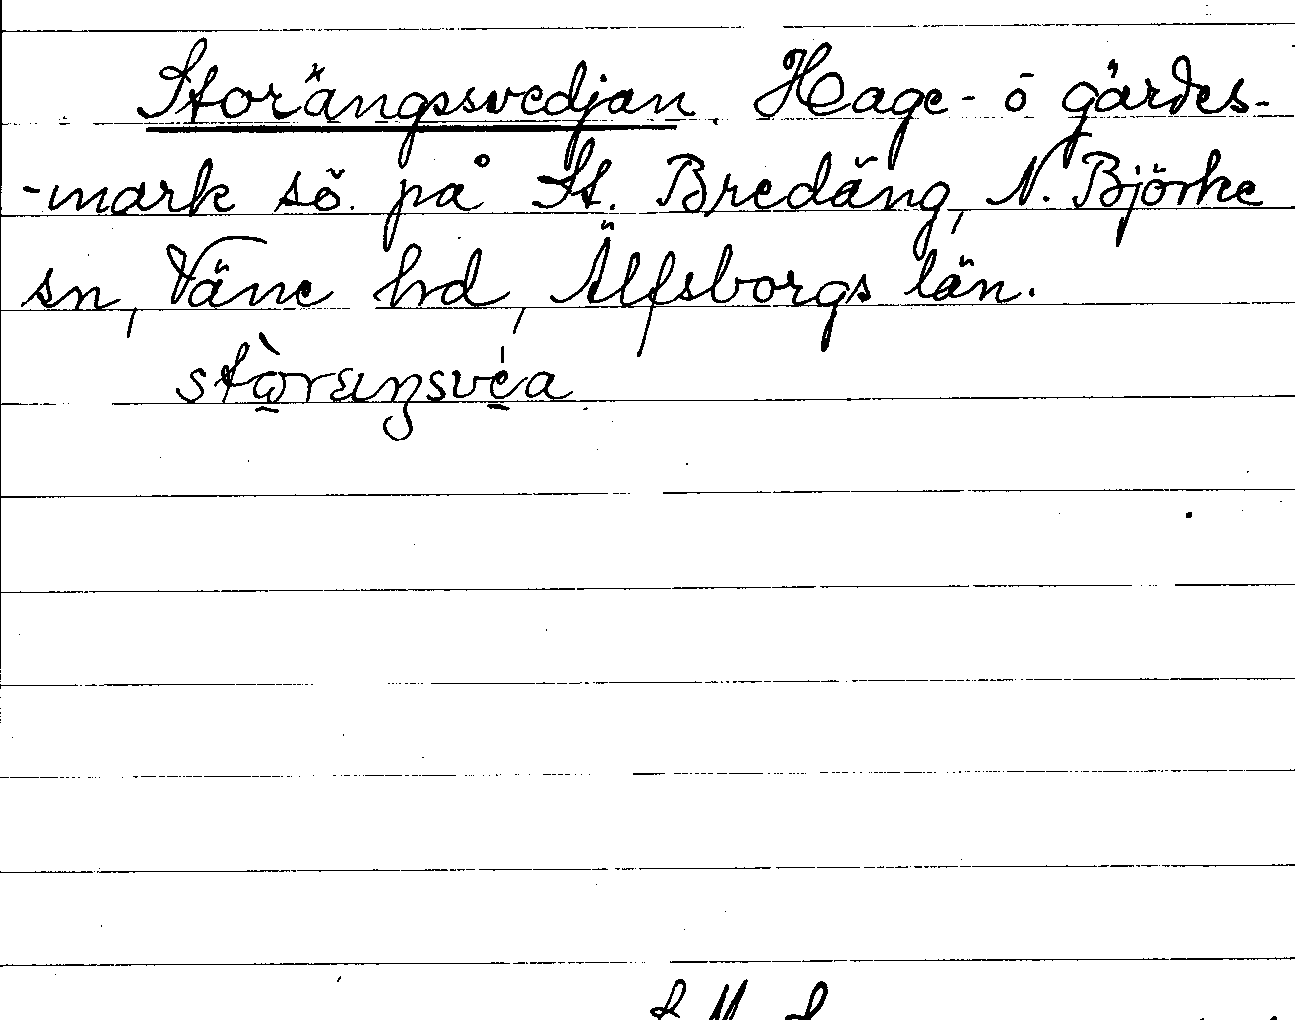 Storängssvedjan. Hage- o gärdes-
-mark sö. på St. Bredäng, N. Björke
sn, Väne hd, Älfsborgs län.